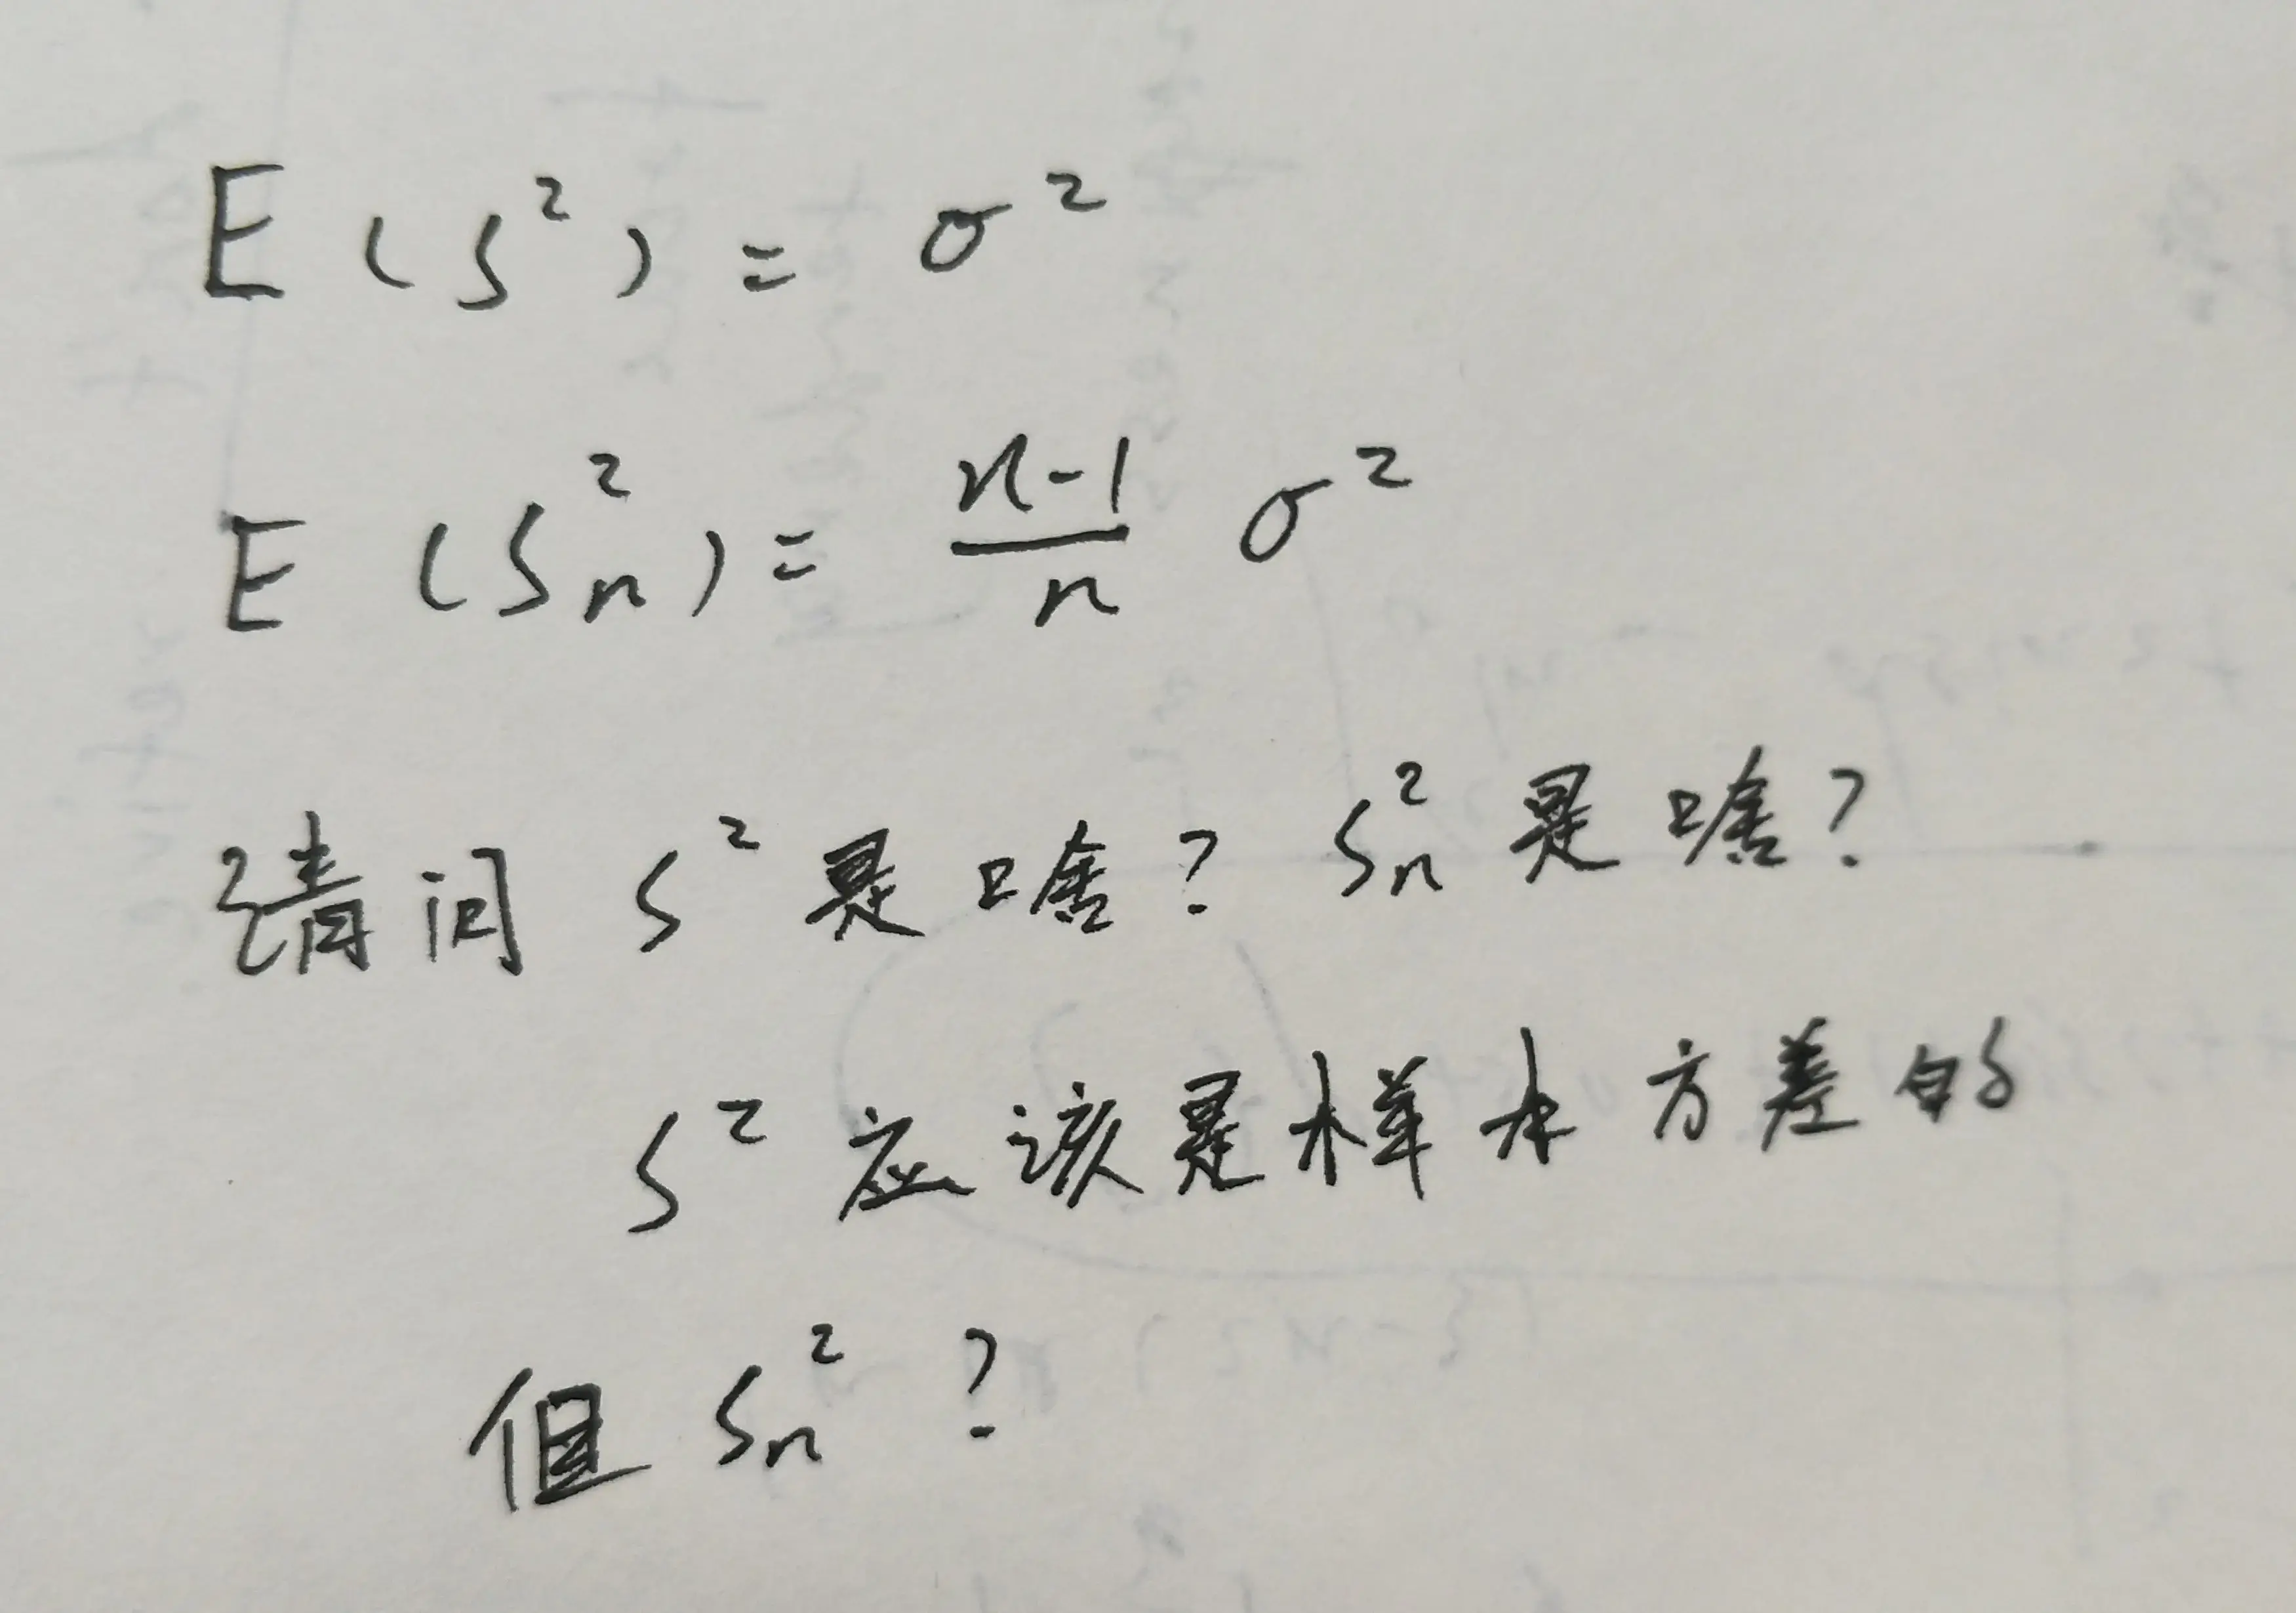 E(S²) = σ²
E(Sn²) = n-1/n σ²
请问 S² 是啥? Sn² 是啥?
S² 应该是样本方差的
但 Sn² ?